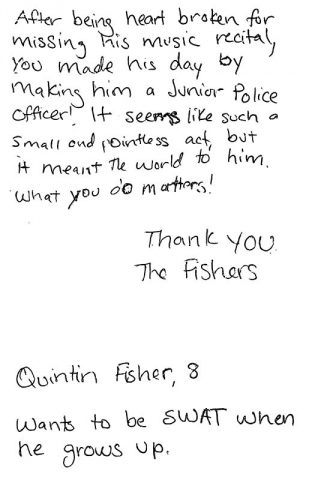 After being heart broken for
missing his music recital,
you made his day by
making him a Junior Police
officer! It seems like such a
small and pointless act, but
it meant the world to him.
What you do matters!
Thank you.
The Fishers
Quintin Fisher, 8
Wants to be SWAT when
he grows up.